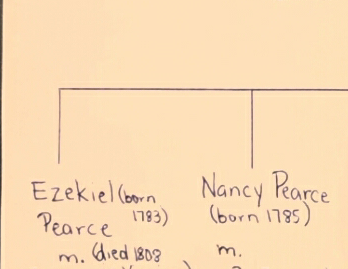 Ezekiel (born
1783)
Pearce
m. (died 1808
Nancy Pearce
(born 1785)
m.